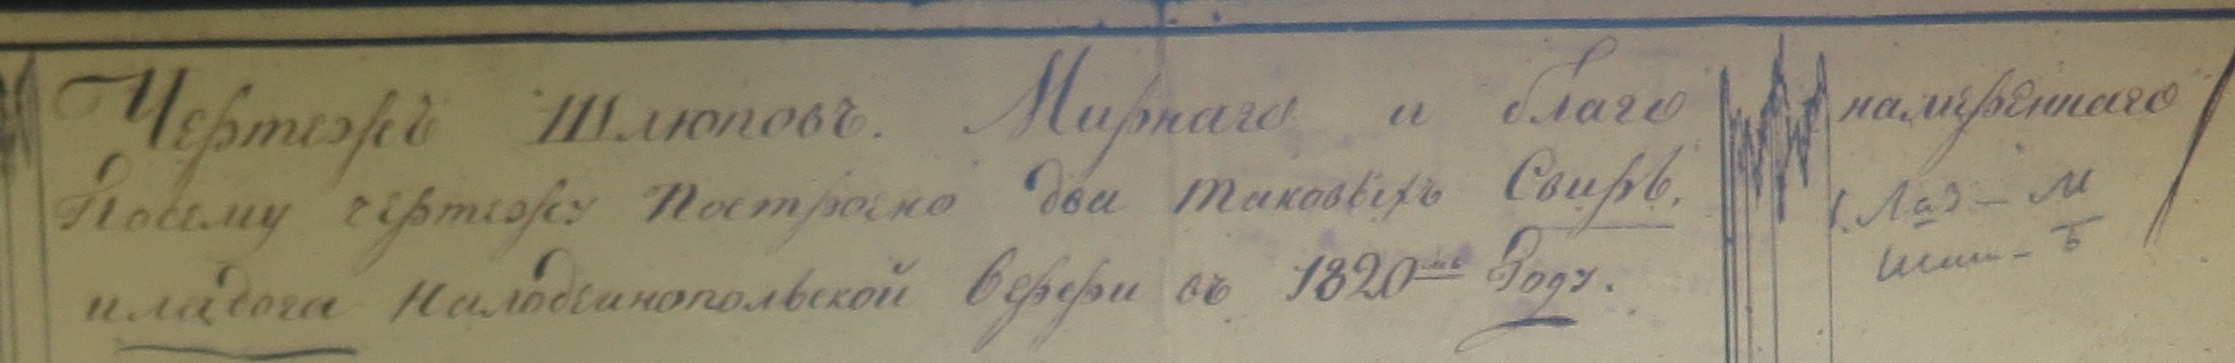 Чертежъ Шлюповъ. Мирнаго и благо намѣреннаго
Посему чертежу Построено два таковыхъ Свирь,
и ладога Налодеинопольской верфи въ 1820мъ Году.
1. Лаз - М
Шиш - Б